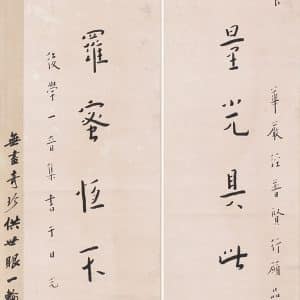 華嚴經普賢行願品
量光具此
羅蜜恆不
後學一音集書于日光
無盡奇珍供世眼一輪